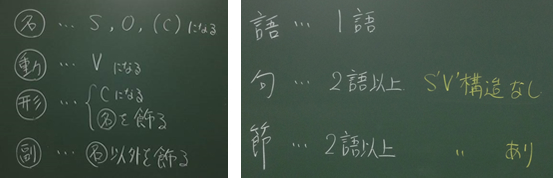 名 … S, O, (C) になる
動 … V になる
形 … Cになる
名を飾る
副 … 名以外を飾る
語 … 1語
句 … 2語以上 S'V'構造なし
節 … 2語以上 〃 あり